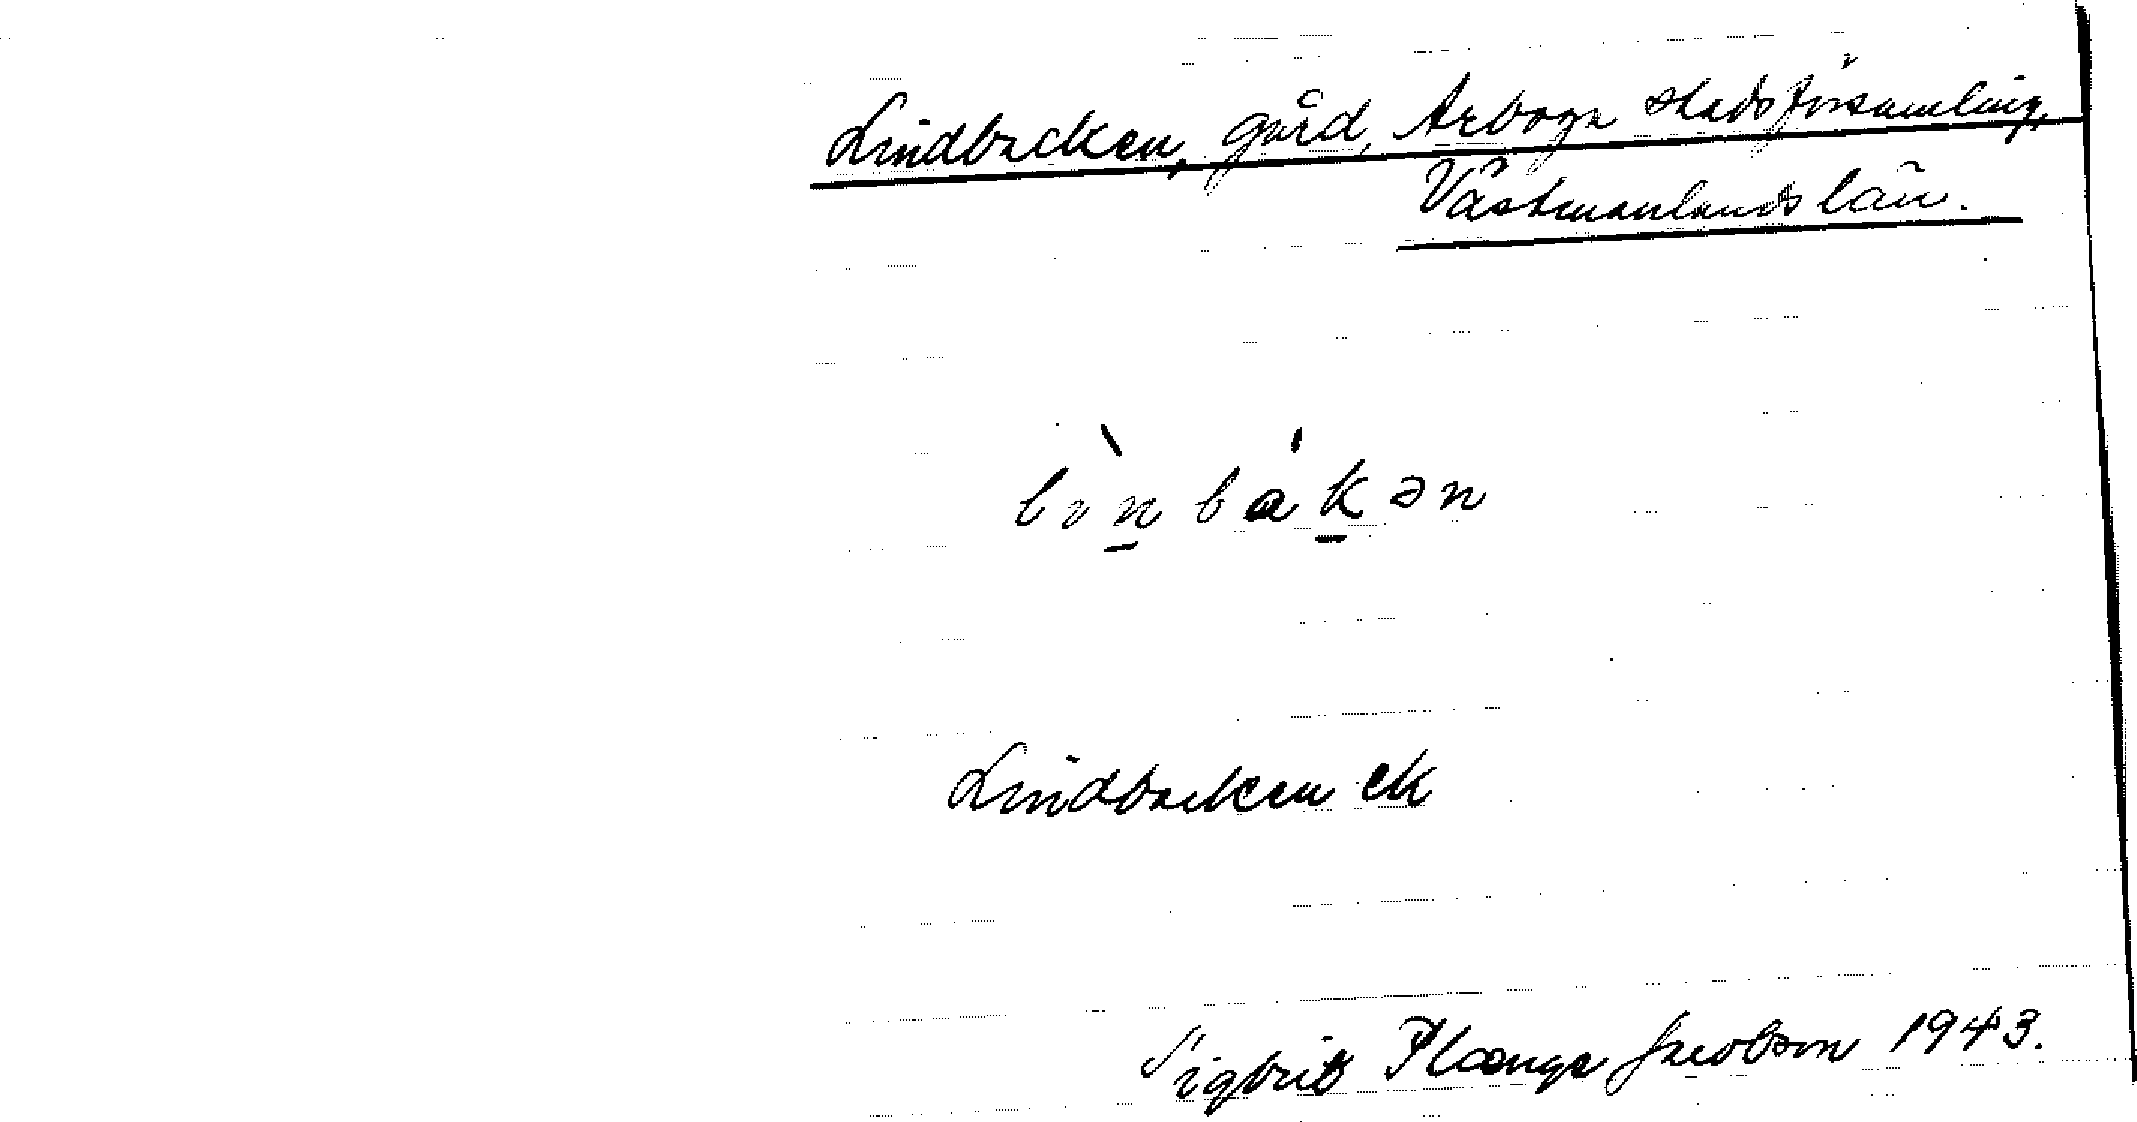 Lindbacken, gård, Arboga stadsförsamling,
Västmanlands län.
lìnbákən
Lindbacken ek
Sigbrit Plænge Jacobson 1943.